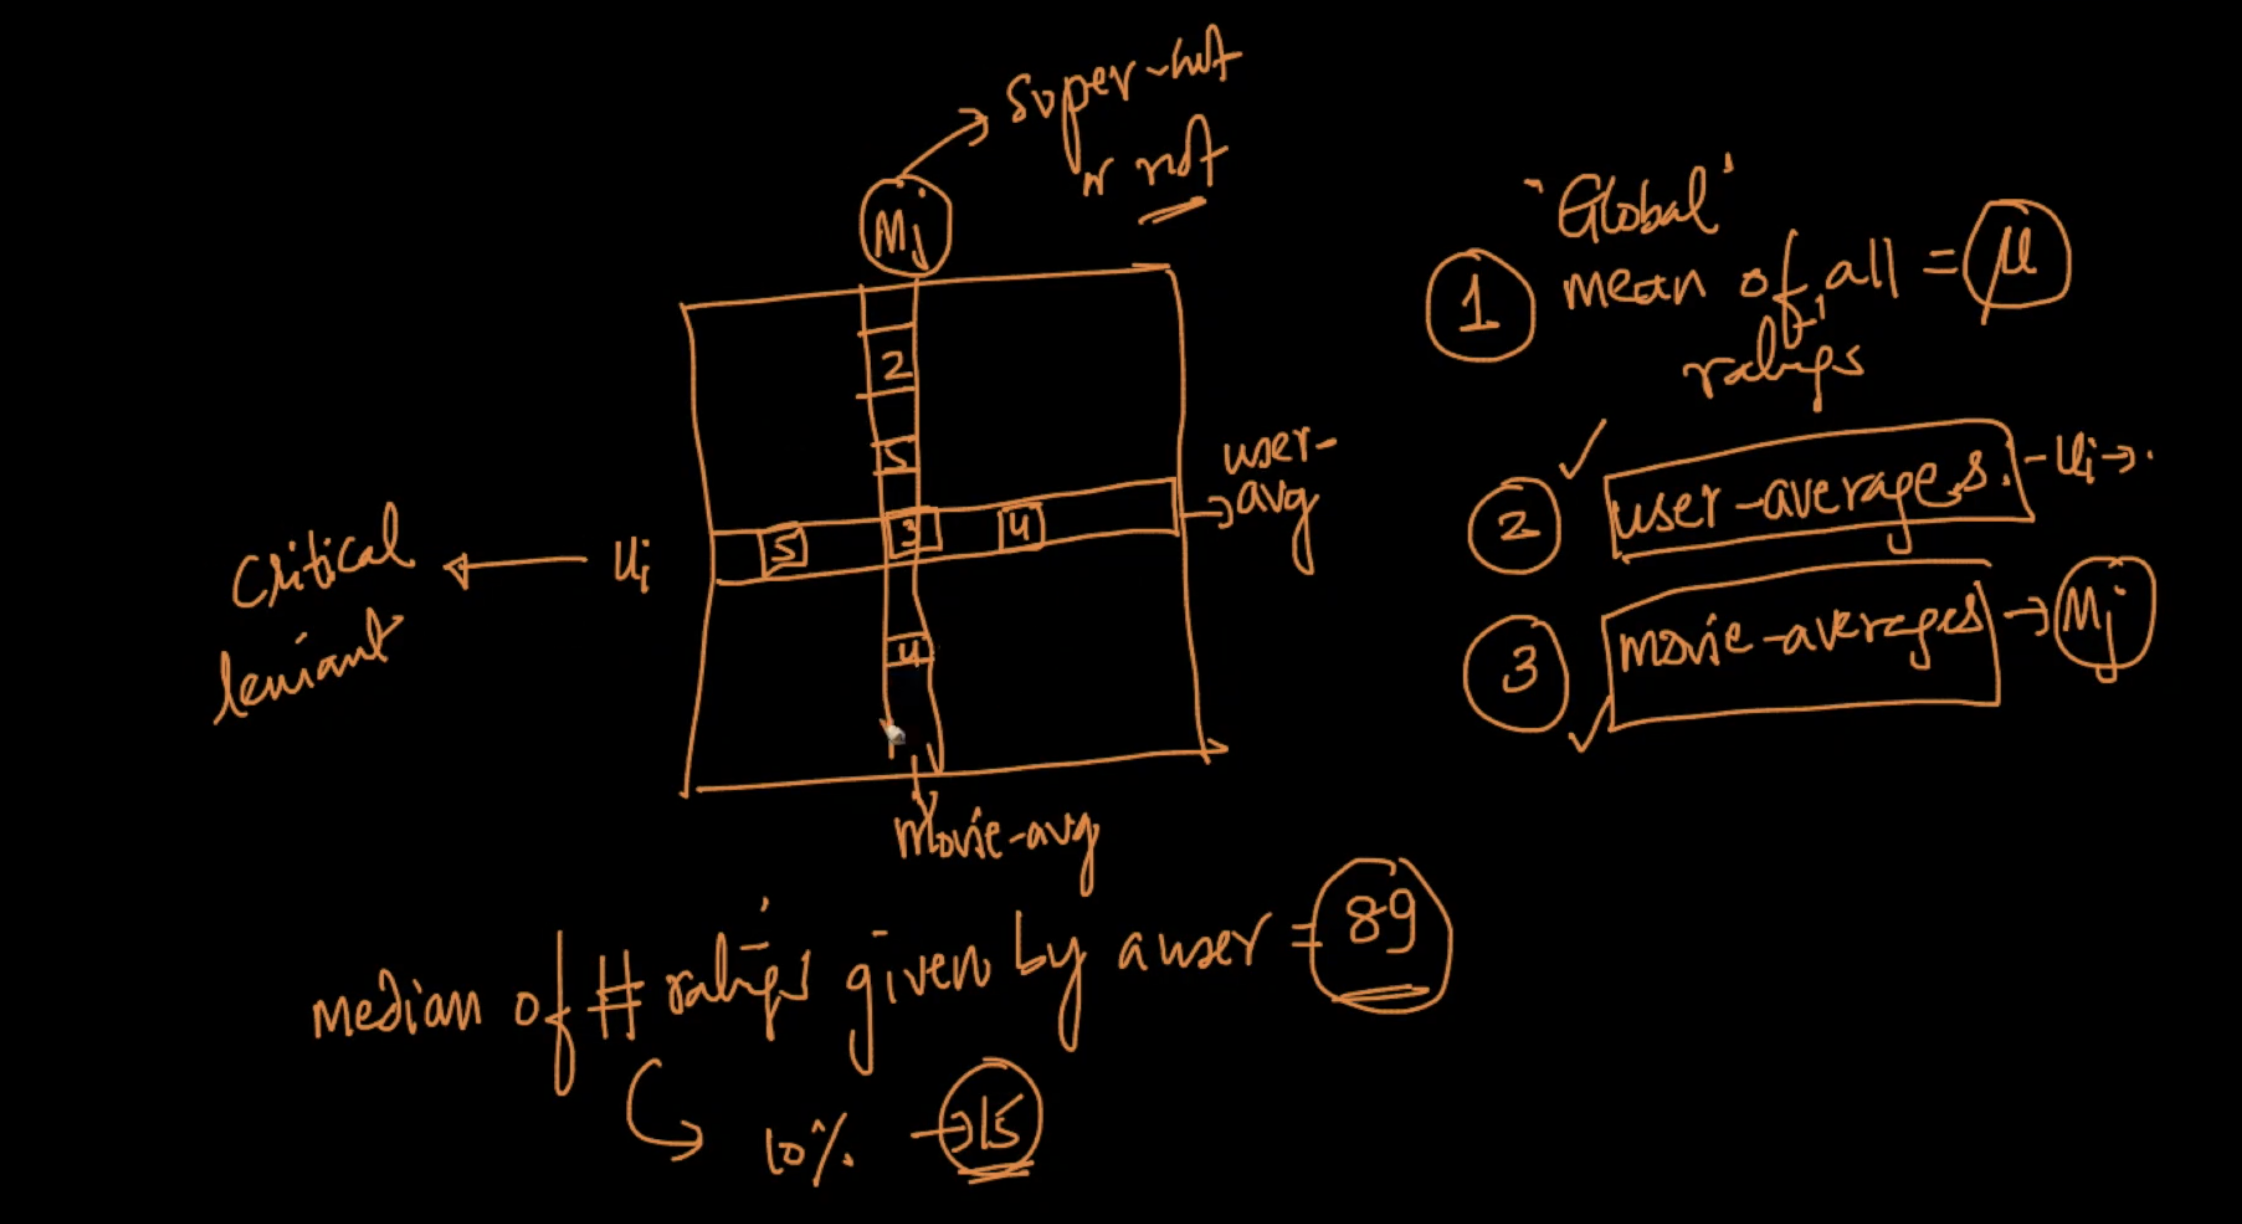 Super-hit
or not
Mj
2
5
Ui
5
3
4
user-
avg
Critical
leniant
4
Movie-avg
"Global"
1 mean of all = μ
ratings
2 user-averages - Ui →
3 movie-averages → Mj
median of # ratings given by a user = 89
10% → 15